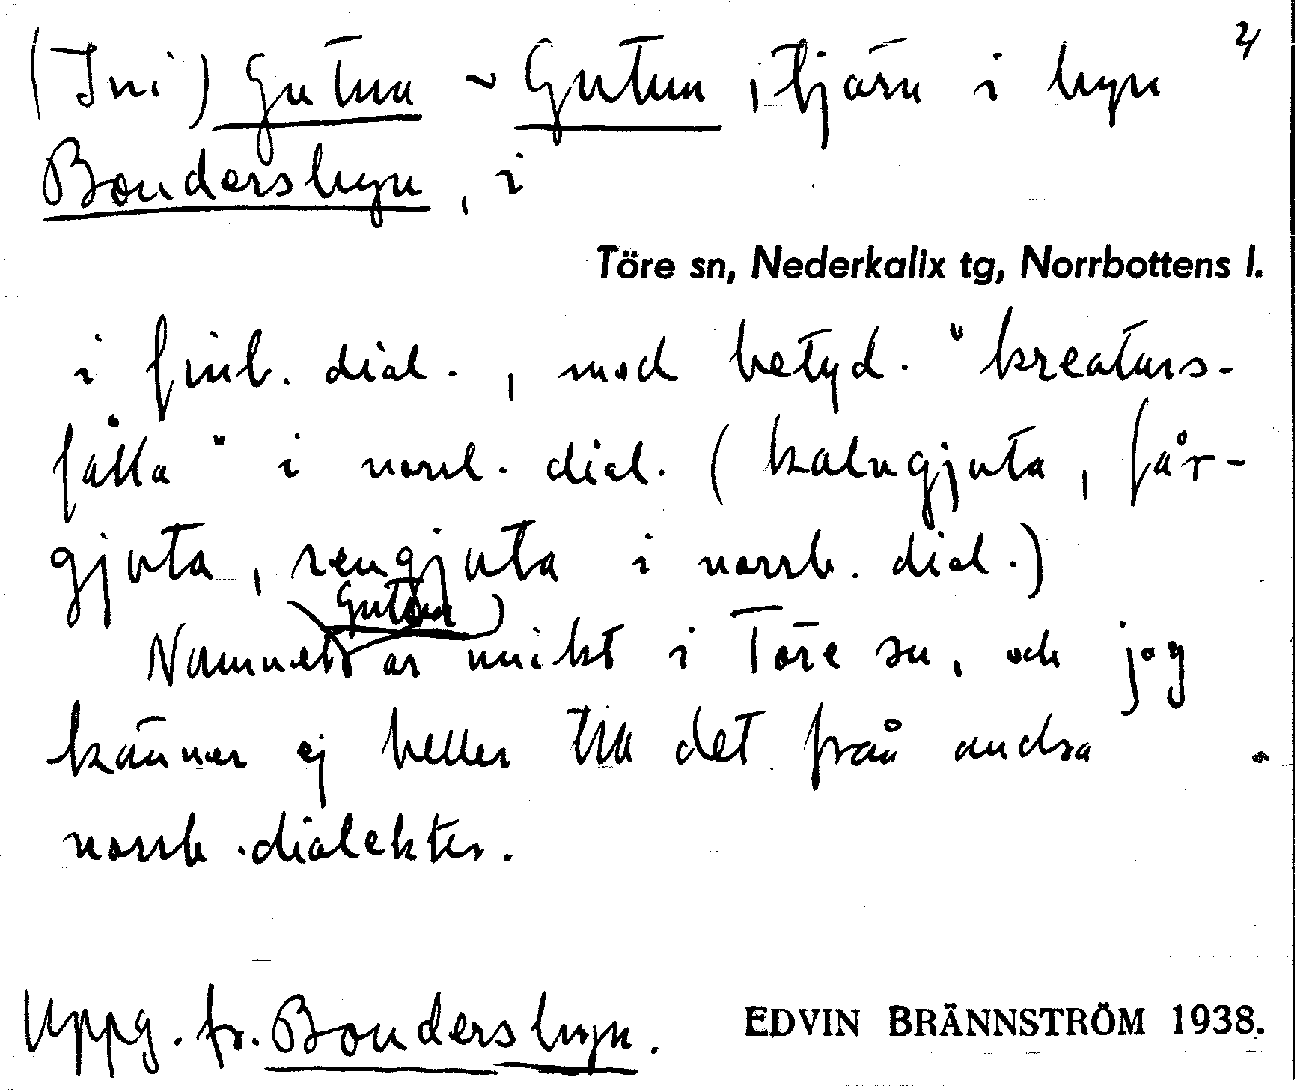 2/
(Ini) Gutna ~ Gutun, tjärn i byn
Bondersbyn, i
Töre sn, Nederkalix tg, Norrbottens l.
i finl. dial., med betyd. "kreaturs-
fålla" i norrl. dial. (kalvgjuta, får-
gjuta, rengjuta i norrb. dial.)
Gutun
Namnet är unikt i Töre sn, och jag
känner ej heller till det från andra
norrb. dialekter.
Uppg. fr. Bondersbyn.
EDVIN BRÄNNSTRÖM 1938.